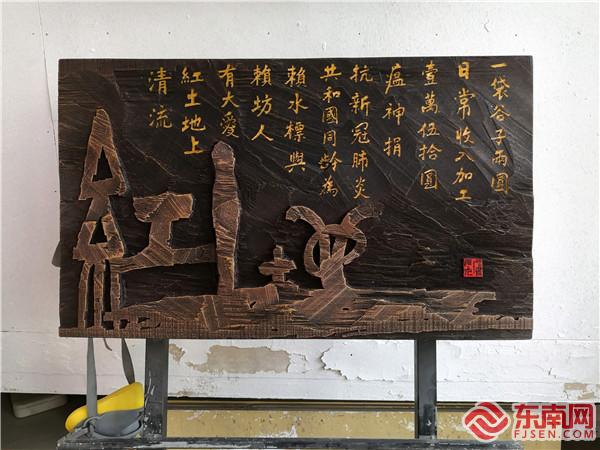 一袋谷子兩圓
日常收入加工
壹萬伍拾圓
瘟神捐
抗新冠肺炎
共和國同齡為
賴水標與
賴坊人
有大愛
紅土地上
清流
紅土地
东南网
FJSEN.COM